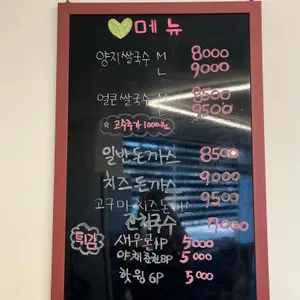 메뉴
양지쌀국수 M 8000
L 9000
얼큰쌀국수 M 8500
L 9500
고수추가 1000원
일반돈까스 8500
치즈돈까스 9000
고구마치즈돈까스 9500
잔치국수 7,000
튀김
새우롤 1P 5000
야채춘권 8P 5000
핫윙 6P 5000